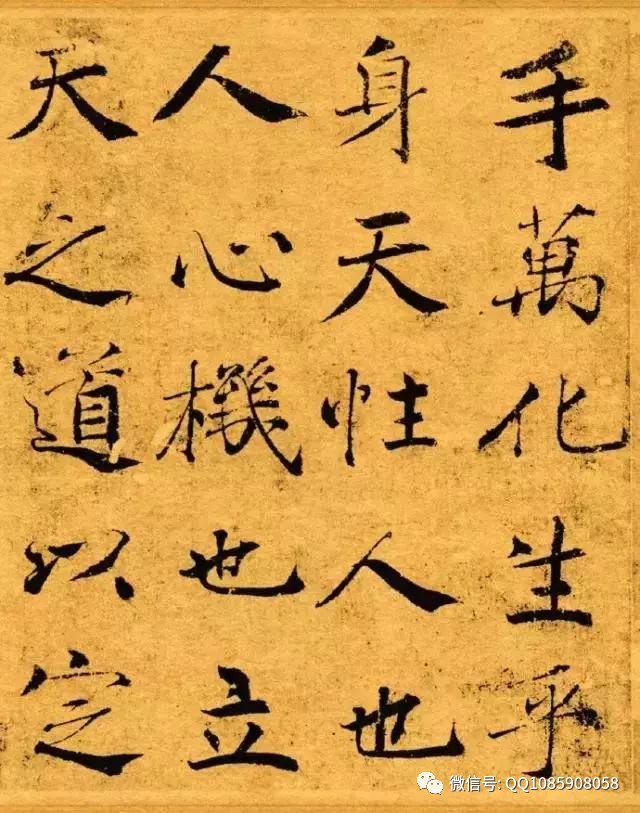 手萬化生乎
身天性人也
人心機也立
天之道以定
微信号: QQ1085908058